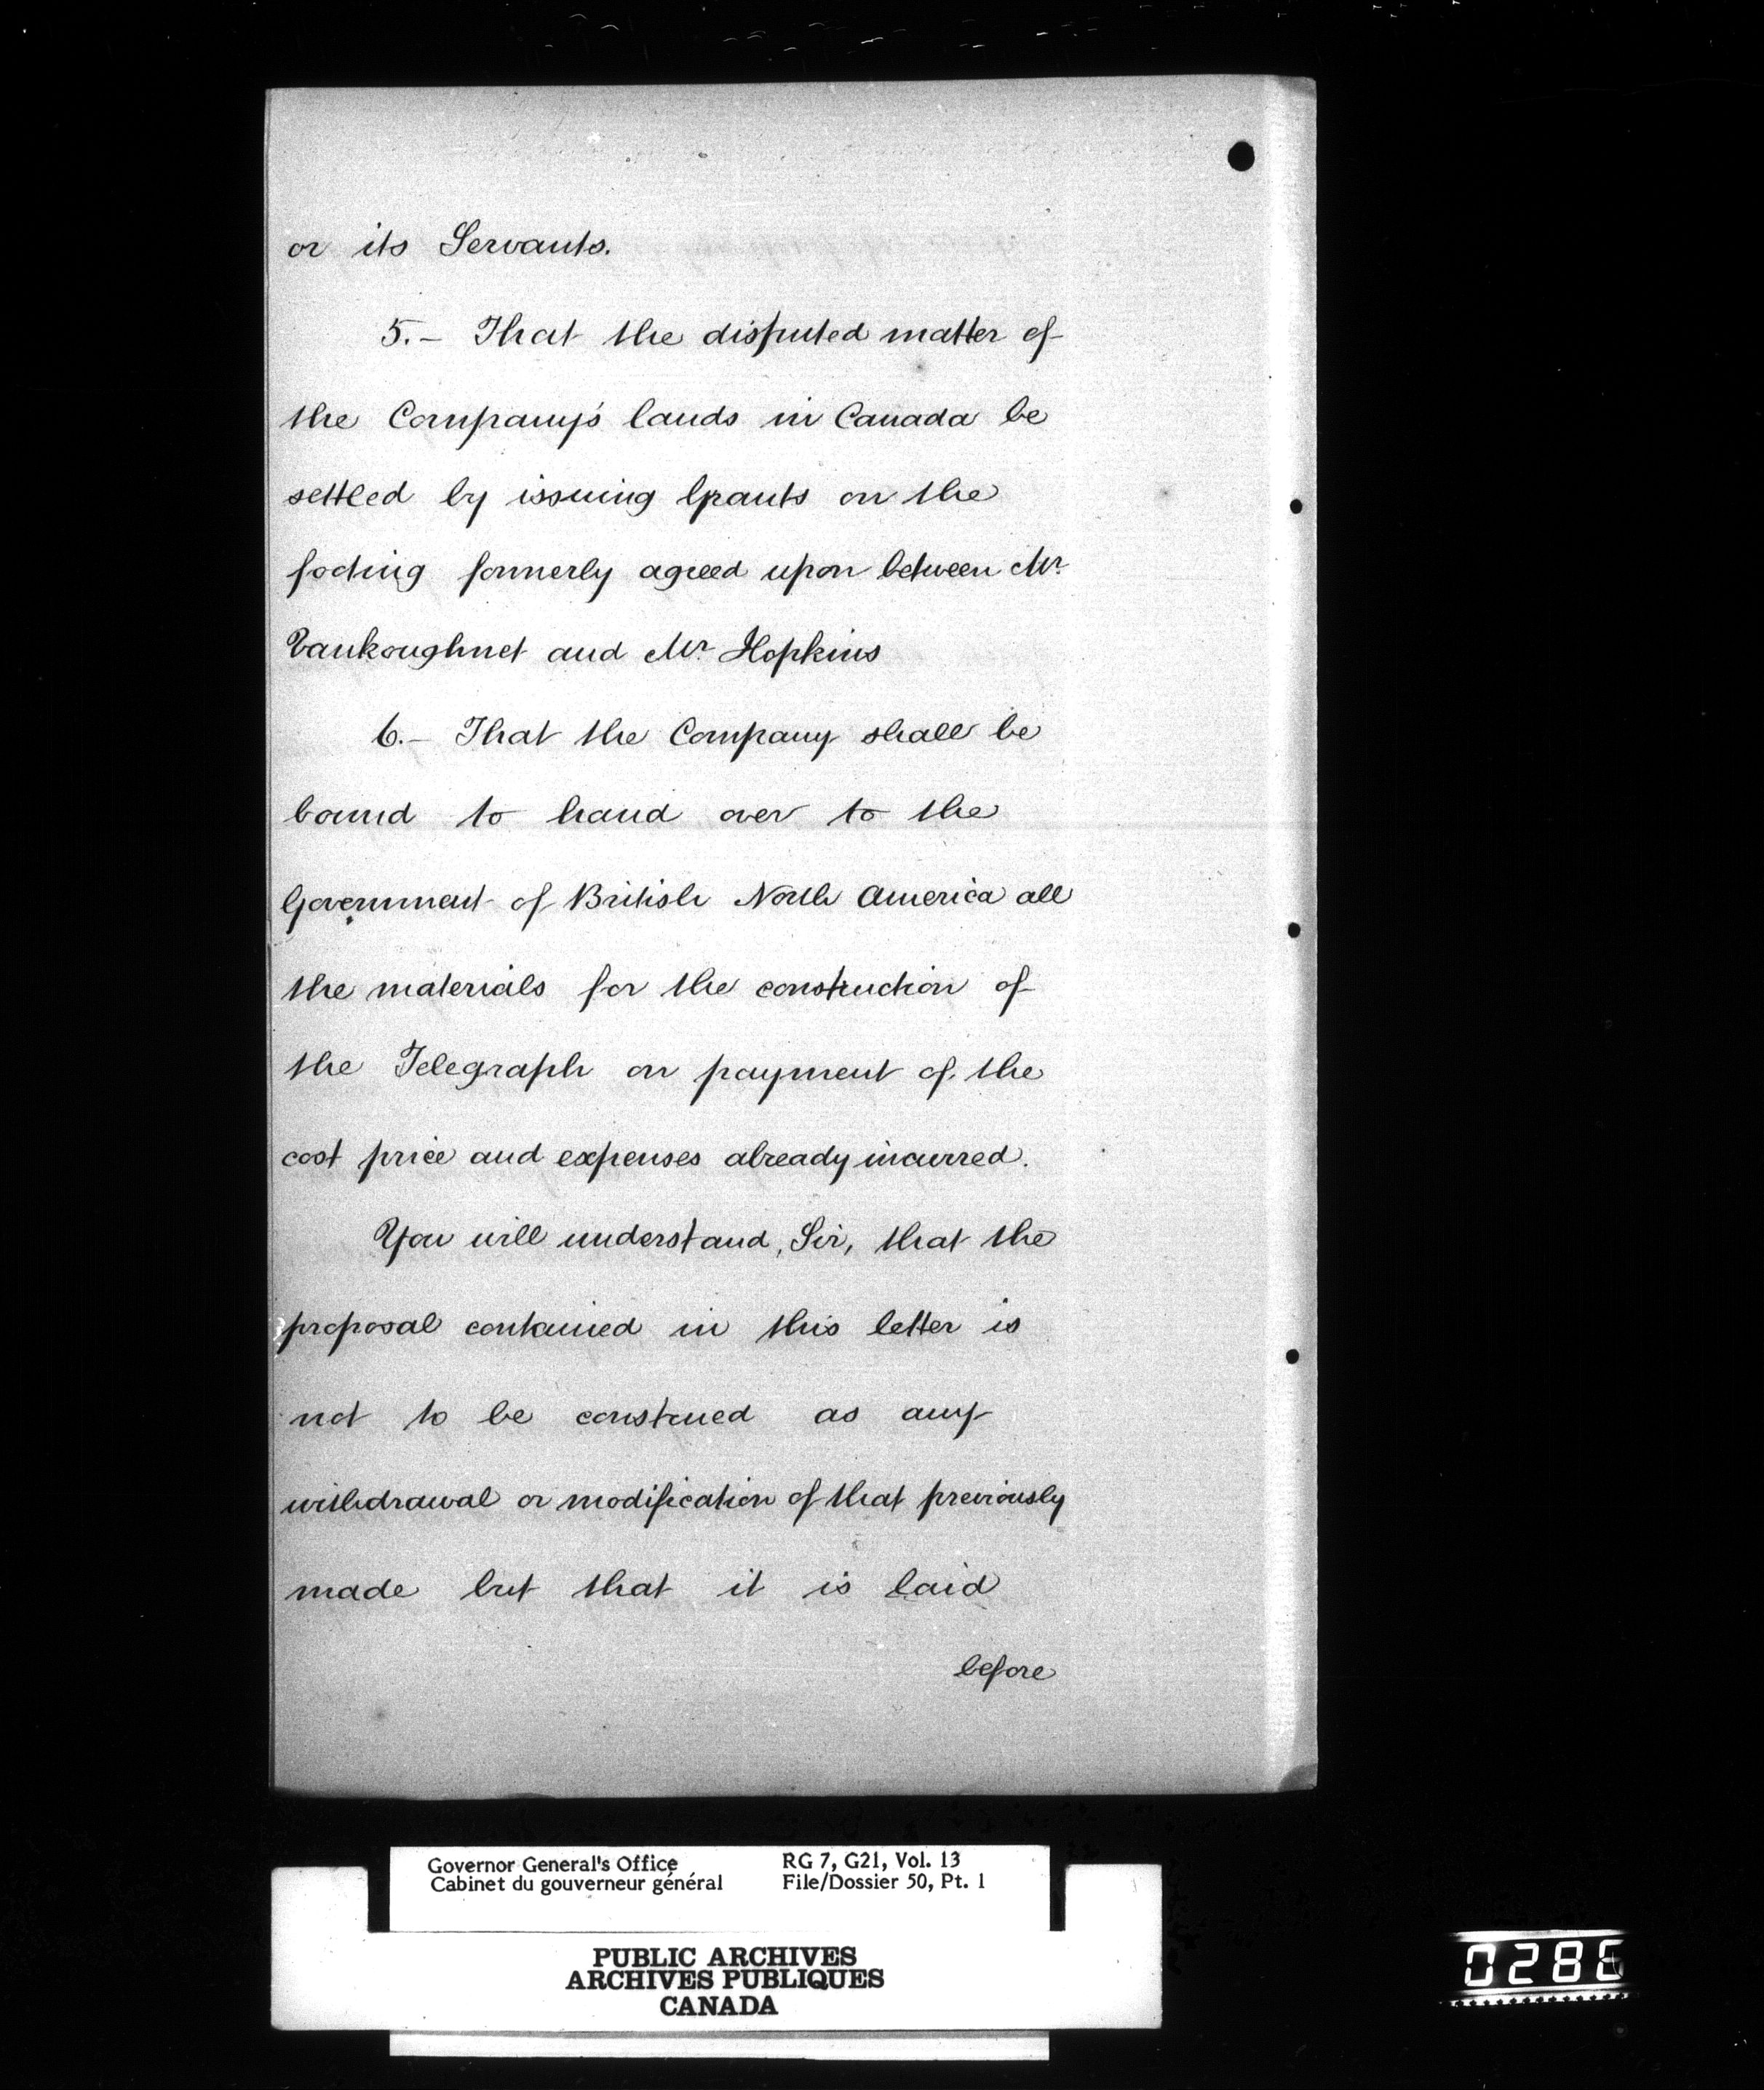 or its Servants.
5.- That the disputed matter of
the Company's lands in Canada be
settled by issuing Grants on the
footing formerly agreed upon between Mr.
Vankoughnet and Mr. Hopkins
6.- That the Company shall be
bound to hand over to the
Government of British North America all
the materials for the construction of
the Telegraph on payment of the
cost price and expenses already incurred.
You will understand, Sir, that the
proposal contained in this letter is
not to be construed as any
withdrawal or modification of that previously
made but that it is laid
before
Governor General's Office
Cabinet du gouverneur général
RG 7, G21, Vol. 13
File/Dossier 50, Pt. 1
PUBLIC ARCHIVES
ARCHIVES PUBLIQUES
CANADA